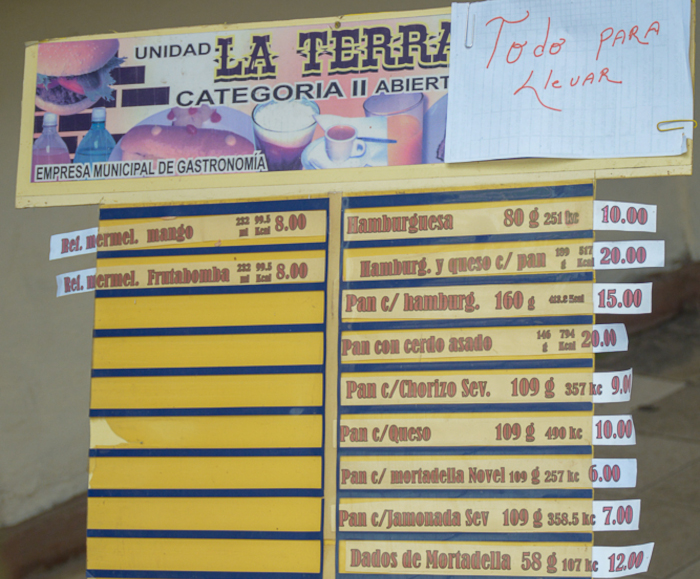 UNIDAD LA TERRA
CATEGORIA II ABIERT
EMPRESA MUNICIPAL DE GASTRONOMÍA
Todo PARA
LLEVAR
Ref. mermel. mango 232 ml 99.5 Kcal 8.00
Ref. mermel. Frutabomba 232 ml 99.5 Kcal 8.00
Hamburguesa 80 g 251 kc 10.00
Hamburg. y queso c/ pan 189 g 517 Kcal 20.00
Pan c/ hamburg. 160 g 413.8 Kcal 15.00
Pan con cerdo asado 146 g 794 Kcal 20.00
Pan c/Chorizo Sev. 109 g 357 kc 9.0
Pan c/Queso 109 g 490 kc 10.00
Pan c/ mortadella Novel 109 g 257 kc 6.00
Pan c/Jamonada Sev 109 g 358.5 kc 7.00
Dados de Mortadella 58 g 107 kc 12.00